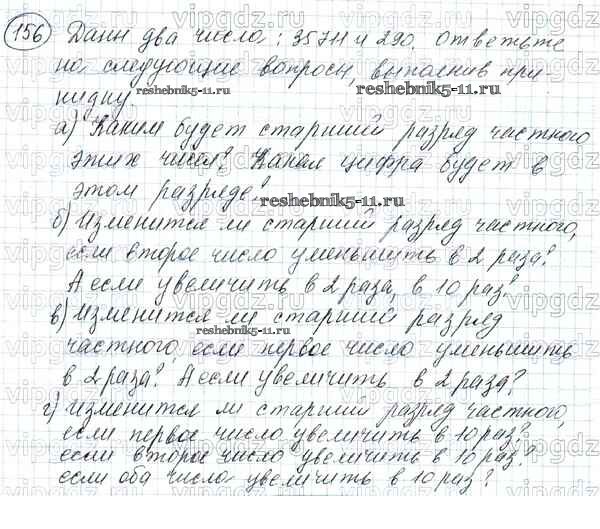 156 Даны два числа: 35711 и 290. Ответьте
на следующие вопросы, выполнив при
кидку.
а) Каким будет старший разряд частного
этих чисел? Какая цифра будет в
этом разряде?
б) Изменится ли старший разряд частного,
если второе число уменьшить в 2 раза?
А если увеличить в 2 раза, в 10 раз?
в) Изменится ли старший разряд
частного, если первое число уменьшить
в 2 раза? А если увеличить в 2 раза?
г) Изменится ли старший разряд частного,
если первое число увеличить в 10 раз?
если второе число увеличить в 10 раз?
если оба числа увеличить в 10 раз?
reshebnik5-11.ru
reshebnik5-11.ru
reshebnik5-11.ru
reshebnik5-11.ru
vipgdz